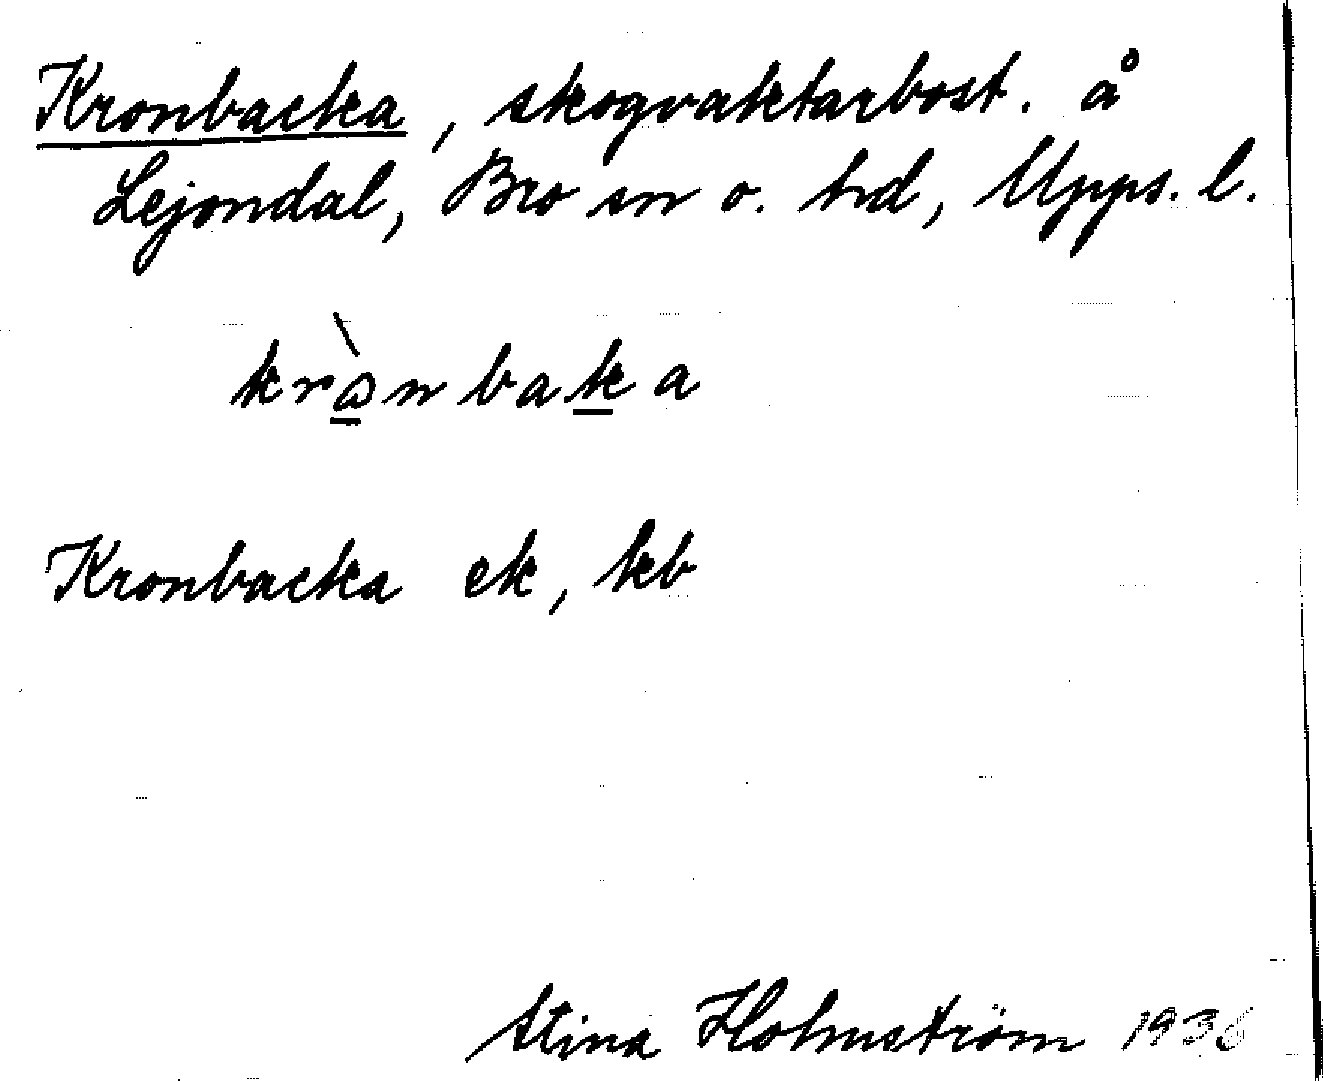 Kronbacka, skogvaktarbost. å
Lejondal, Bro sn o. hd, Upps. l.
krònbaka
Kronbacka ek, kb
Stina Holmström 1936